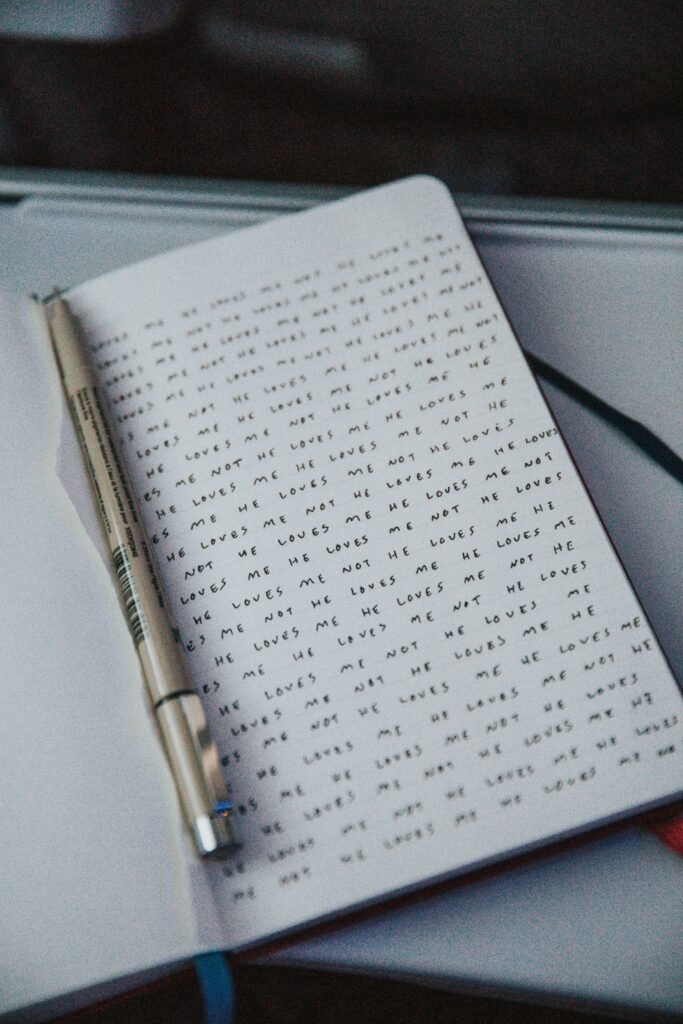 ME HE LOVES ME NOT HE LOVES ME
LOVES ME NOT HE LOVES ME HE LOVES ME NOT
LOVES ME HE LOVES ME NOT HE LOVES ME
LOVES ME NOT HE LOVES ME HE LOVES ME NOT
LOVES ME HE LOVES ME NOT HE LOVES ME HE
ME NOT HE LOVES ME HE LOVES ME NOT
LOVES ME HE LOVES ME NOT HE LOVES
HE LOVES ME NOT HE LOVES ME HE
ES ME NOT HE LOVES ME HE LOVES ME
HE LOVES ME HE LOVES ME NOT HE
ES ME HE LOVES ME NOT HE LOVES
HE LOVES ME NOT HE LOVES ME HE LOVES
NOT HE LOVES ME HE LOVES ME NOT
LOVES ME HE LOVES ME NOT HE LOVES
HE LOVES ME NOT HE LOVES ME HE
ES ME NOT HE LOVES ME HE LOVES ME
HE LOVES ME HE LOVES ME NOT HE
ES ME HE LOVES ME NOT HE LOVES
HE LOVES ME NOT HE LOVES ME
LOVES ME NOT HE LOVES ME HE
ES ME NOT HE LOVES ME HE LOVES ME
HE LOVES ME HE LOVES ME NOT HE
ES ME HE LOVES ME NOT HE LOVES
HE LOVES ME NOT HE LOVES ME HE
HE LOVES ME NOT HE LOVES ME HE LOVES
ME NOT HE LOVES ME HE LOVES ME NO